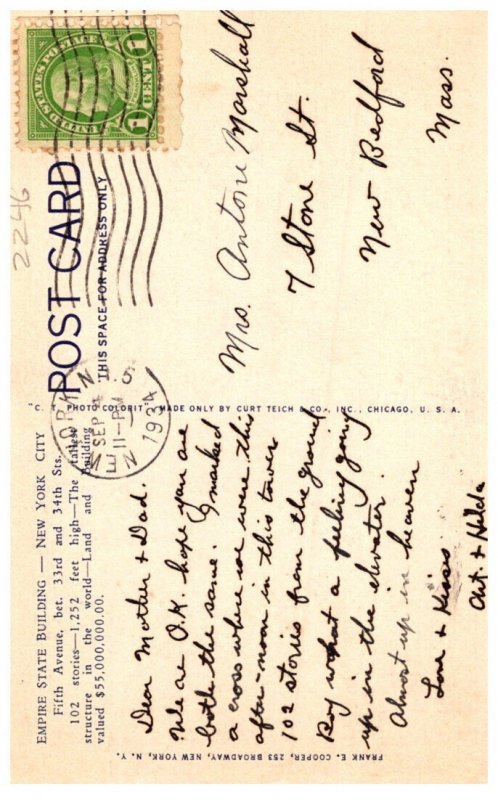 EMPIRE STATE BUILDING — NEW YORK CITY
Fifth Avenue, bet. 33rd and 34th Sts.
102 stories—1,252 feet high—The tallest
structure in the world—Land and building
valued $55,000,000.00.
Dear Mother + Dad.
We are O.K. hope you are
both the same. I marked
a cross where we were this
after-noon in this tower
102 stories from the ground
Boy what a feeling going
up in the elevator.
Almost up in heaven
Love + Kisses.
Art. + Hilda
FRANK E. COOPER, 253 BROADWAY, NEW YORK, N. Y.
"C. T. PHOTO COLORIT" MADE ONLY BY CURT TEICH & CO., INC., CHICAGO, U. S. A.
POST CARD
THIS SPACE FOR ADDRESS ONLY
2246
NEW YORK, N.Y.
SEP 3
11-PM
1934
UNITED STATES POSTAGE
1 1
Mrs. Antone Marshall
7 Stone St.
New Bedford
Mass.